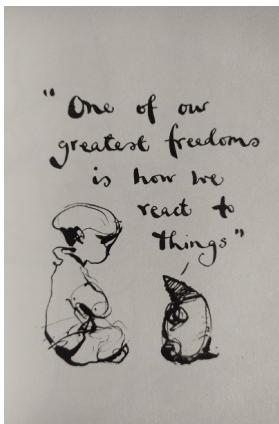 "One of our
greatest freedoms
is how we
react to
things"